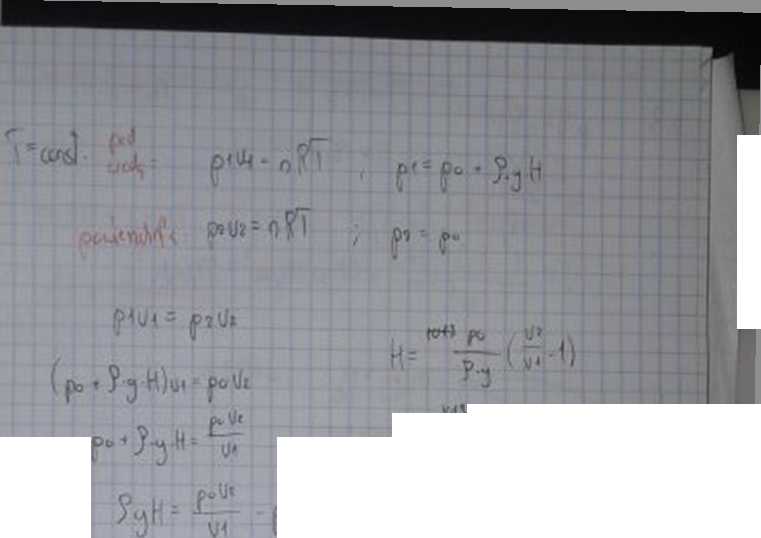 T = const. pod wodą: p1V1 = nRT ; p1 = p0 + ρ·g·H
powierzchni: p2V2 = nRT ; p2 = p0
p1V1 = p2V2
(p0 + ρ·g·H)V1 = p0V2
p0 + ρ·g·H = p0V2/V1
ρgH = p0V2/V1 -
H = p0/ρ·g (V2/V1 - 1)